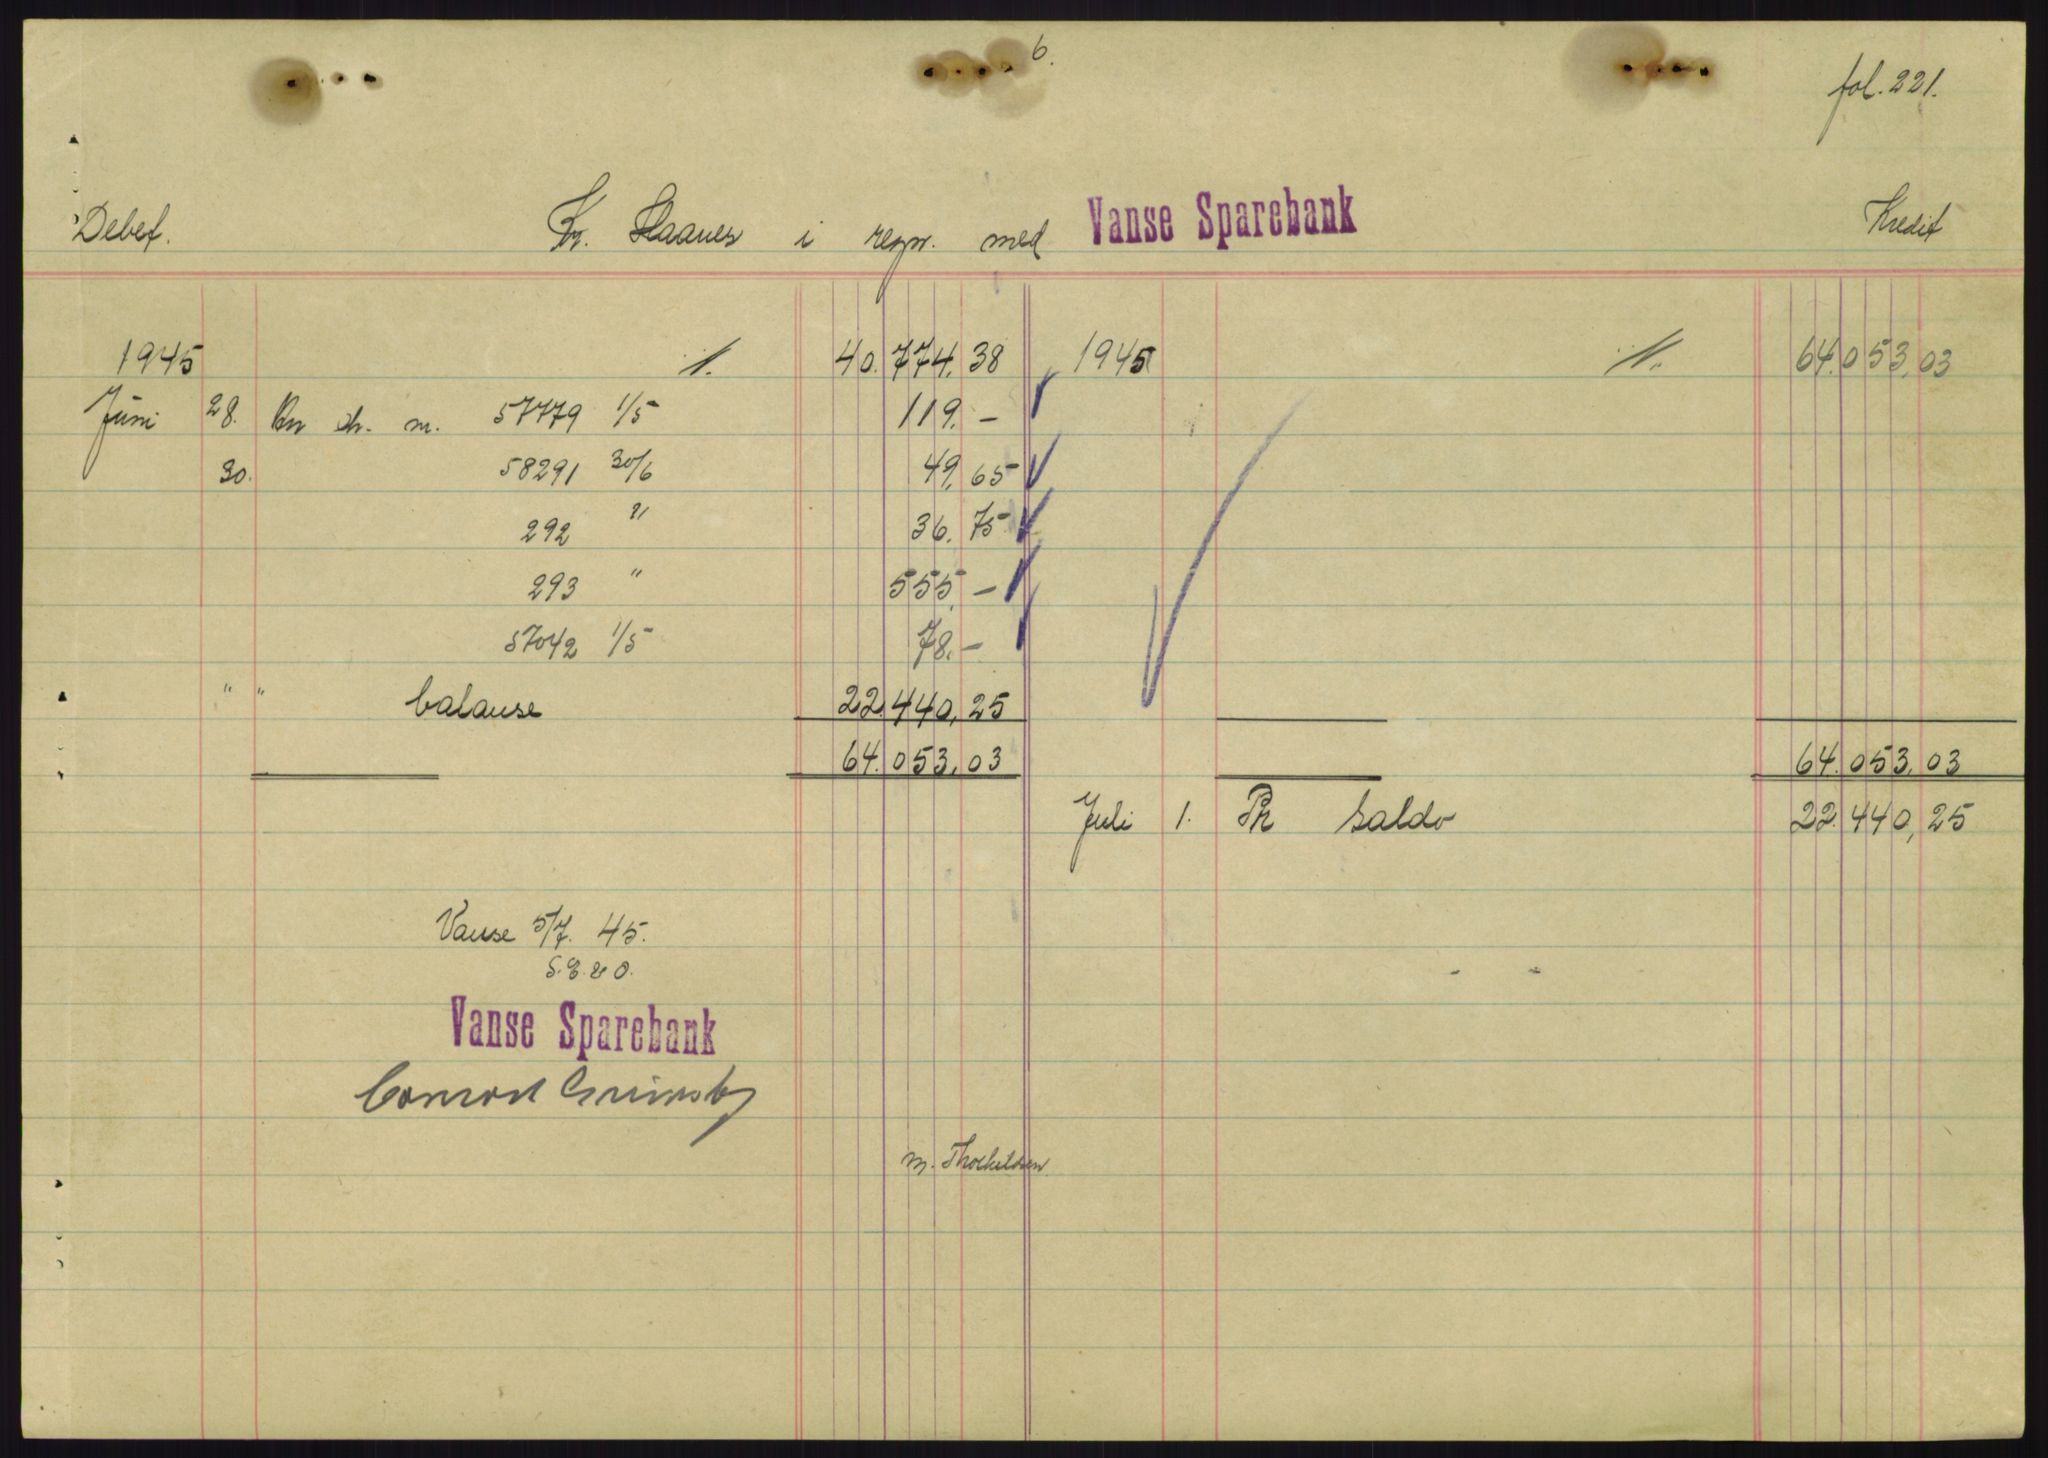 6.
fol. 221.
Debet. Kr. Haanes i regn. med Vanse Sparebank Kredit
1945 40.774,38 1945 64.053,03
Juni 28. An ch. nr. 57779 1/5 119.-
30. 58291 30/6 49,65
292 " 36,75
293 " 555,-
57042 1/5 78.-
" " balanse 22.440,25
64.053,03 64.053,03
Juli 1. Pr. saldo 22.440,25
Vanse 5/7. 45.
S.E. & O.
Vanse Sparebank
Conrad Grimsby
M. Thorkildsen